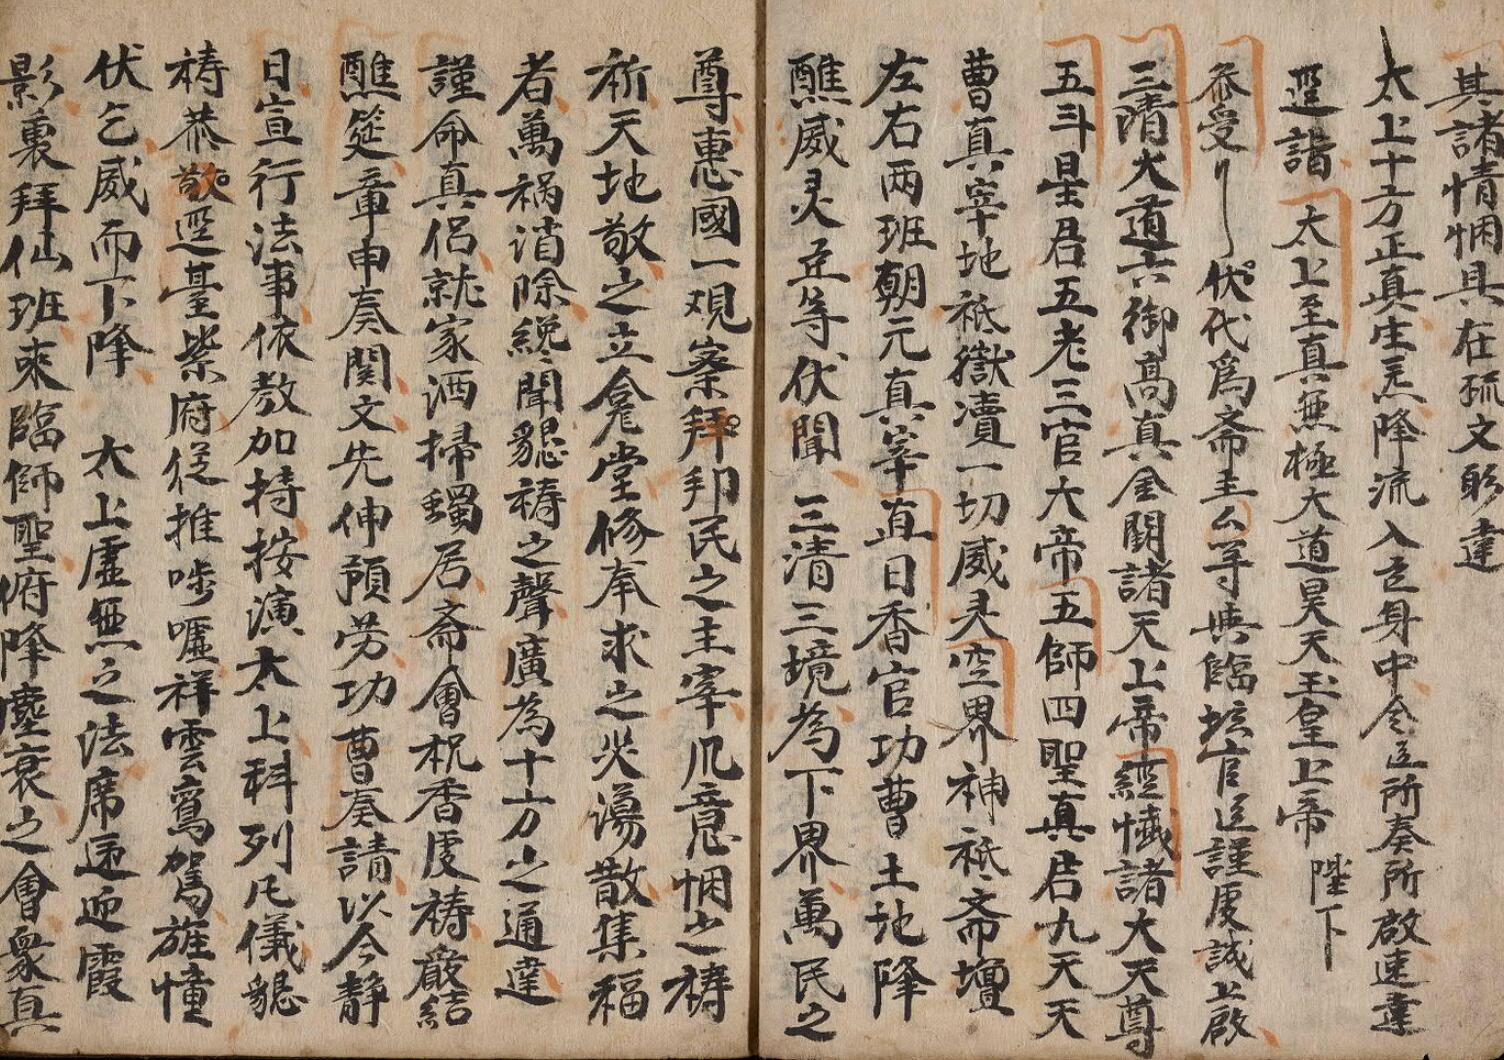 其諸情悃具在疏文躬達
太上十方正真生炁降流入臣身中令臣所奏所啟速達
逕詣　太上至真無極大道昊天玉皇上帝　陛下
叅受　伏代為斋主厶等與臨坛官臣謹虔誠上啟
三清大道六御高真金闕諸天上帝經懺諸大天尊
五斗星君五老三官大帝五師四聖真君九天天
曹真宰地祇嶽瀆一切威灵空界神祇斋壇
左右两班朝元真宰直日香官功曹土地降
醮威灵丘等伏聞　三清三境為下界萬民之
尊惠國一观寀拜邦民之主宰凡意悃之禱
祈天地敬之立龛堂修奉求之災蕩散集福
者萬祸消除總聞懇禱之聲廣為十方之通達
謹命真侣就家洒掃蠲居斋會祝香虔禱嚴結
醮筵章申奏関文先伸預劳功曹奏請以今静
日宣行法事依教加持按演太上科列凡儀懇
禱恭敬逕臺紫府従推嘘祥雲鸾駕旌幢
伏乞威而下降　太上虛無之法席速迎霞
影裏拜仙班來臨師聖府降塵衰之會衆真